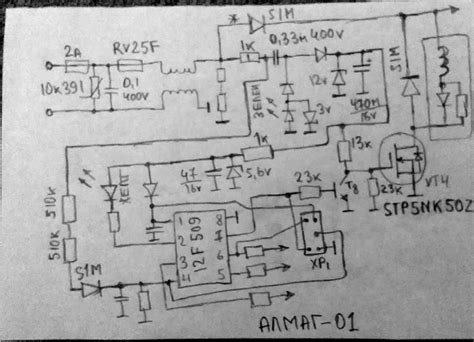 * S1M
2A RV25F 1к 0,33м 400v
10к391 0,1
400v
ЗЕЛЕН 12v 3v 470м
16v
S1M
510к 510к
ЖЕЛТ 47
16v 5,6v 1к
13к
23к T8 23к VT4
STP5NK50Z
1 2 3 4 12F509 8 7 6 5
XP1
S1M
АЛМАГ-01